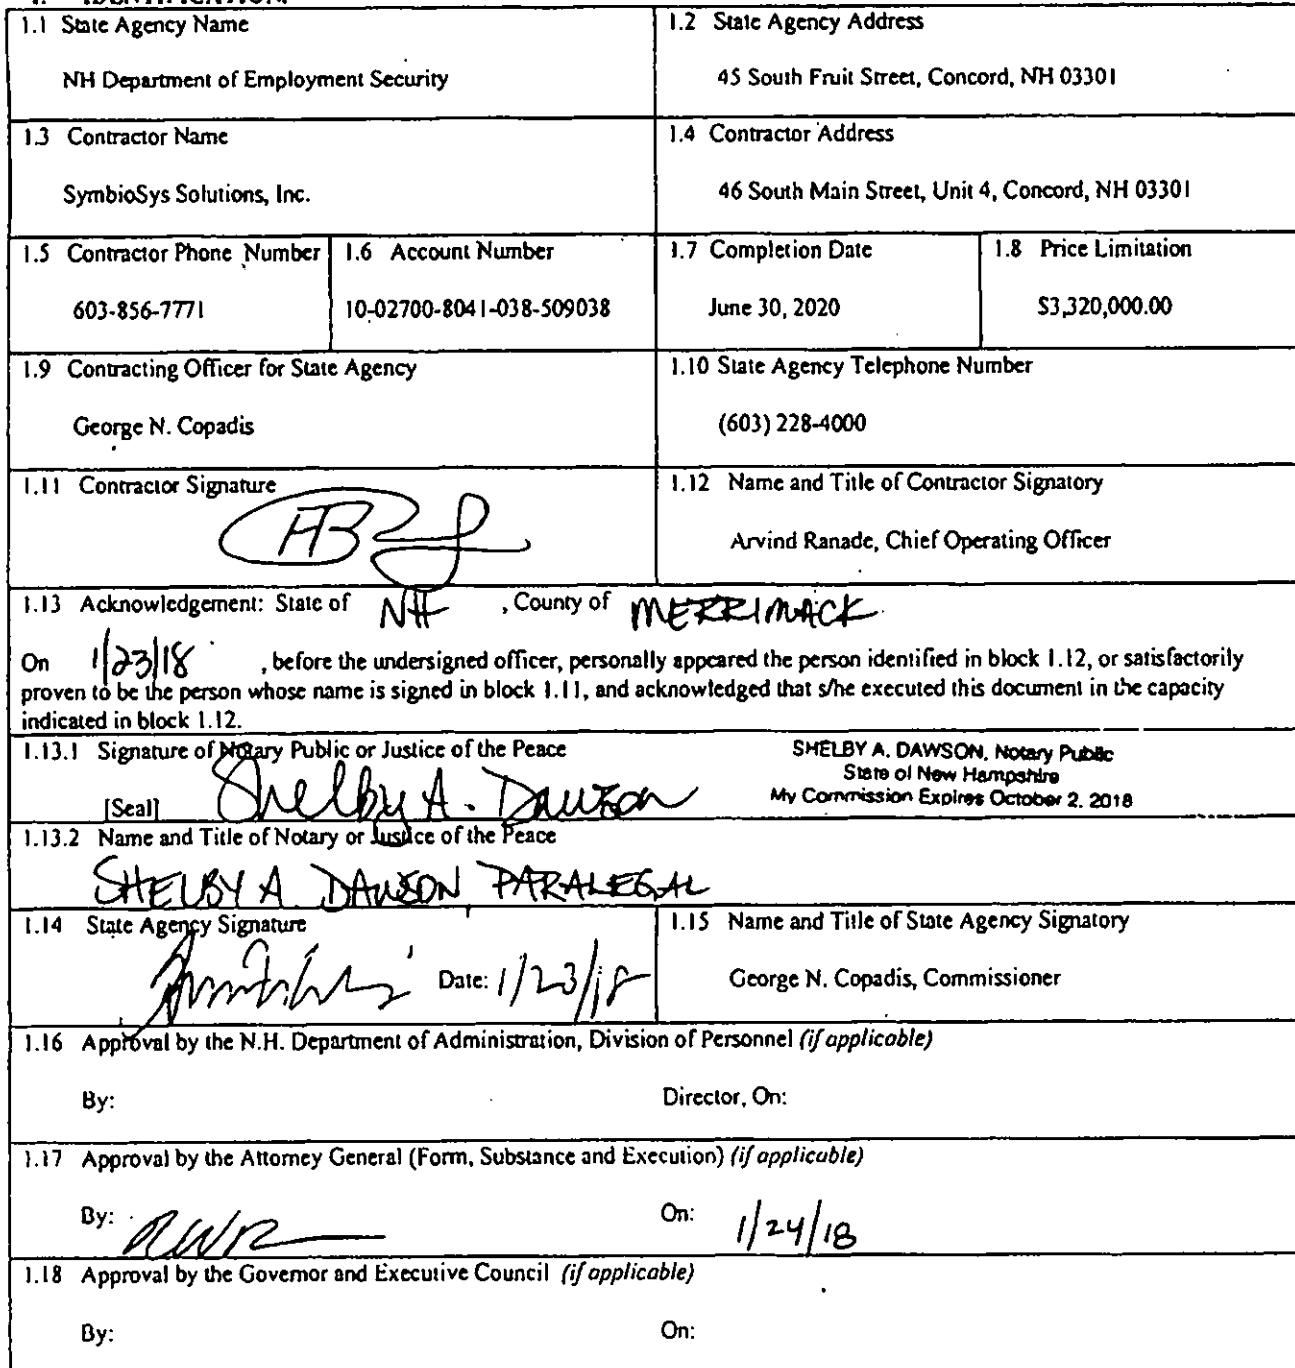 1. IDENTIFICATION.
1.1 State Agency Name
NH Department of Employment Security
1.2 State Agency Address
45 South Fruit Street, Concord, NH 03301
1.3 Contractor Name
SymbioSys Solutions, Inc.
1.4 Contractor Address
46 South Main Street, Unit 4, Concord, NH 03301
1.5 Contractor Phone Number
603-856-7771
1.6 Account Number
10-02700-8041-038-509038
1.7 Completion Date
June 30, 2020
1.8 Price Limitation
$3,320,000.00
1.9 Contracting Officer for State Agency
George N. Copadis
1.10 State Agency Telephone Number
(603) 228-4000
1.11 Contractor Signature
1.12 Name and Title of Contractor Signatory
Arvind Ranade, Chief Operating Officer
1.13 Acknowledgement: State of NH , County of MERRIMACK
On 1/23/18 , before the undersigned officer, personally appeared the person identified in block 1.12, or satisfactorily
proven to be the person whose name is signed in block 1.11, and acknowledged that s/he executed this document in the capacity
indicated in block 1.12.
1.13.1 Signature of Notary Public or Justice of the Peace
[Seal] Shelby A. Dawson
SHELBY A. DAWSON, Notary Public
State of New Hampshire
My Commission Expires October 2, 2018
1.13.2 Name and Title of Notary or Justice of the Peace
SHELBY A DAWSON, PARALEGAL
1.14 State Agency Signature
Date: 1/23/18
1.15 Name and Title of State Agency Signatory
George N. Copadis, Commissioner
1.16 Approval by the N.H. Department of Administration, Division of Personnel (if applicable)
By: Director, On:
1.17 Approval by the Attorney General (Form, Substance and Execution) (if applicable)
By: On: 1/24/18
1.18 Approval by the Governor and Executive Council (if applicable)
By: On: